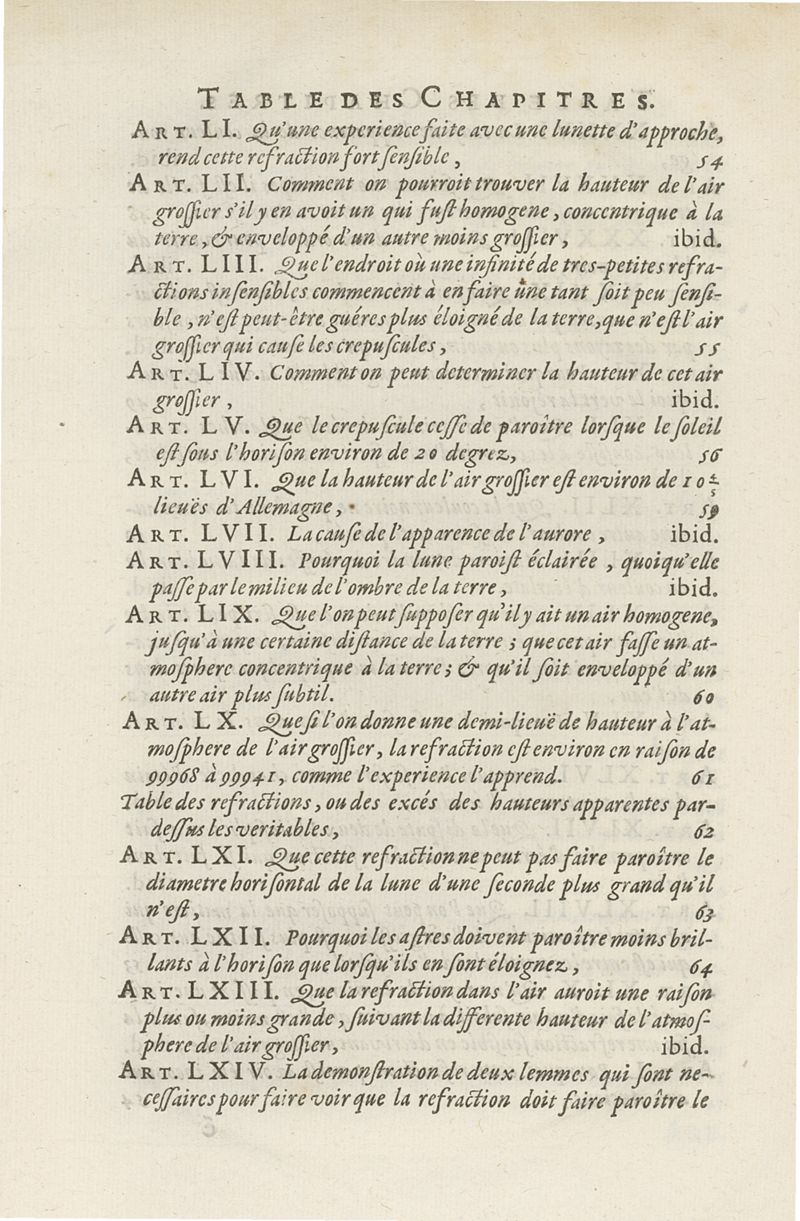 TABLE DES CHAPITRES.
ART. LI. Qu'une experience faite avec une lunette d'approche,
rend cette refraction fort ſenſible, 54
ART. LII. Comment on pourroit trouver la hauteur de l'air
groſſier s'il y en avoit un qui fuſt homogene, concentrique à la
terre, & enveloppé d'un autre moins groſſier, ibid.
ART. LIII. Que l'endroit où une infinité de tres-petites refra-
ctions inſenſibles commencent à en faire une tant ſoit peu ſenſi-
ble, n'eſt peut-être guéres plus éloigné de la terre, que n'eſt l'air
groſſier qui cauſe les crepuſcules, 55
ART. LIV. Comment on peut determiner la hauteur de cet air
groſſier, ibid.
ART. LV. Que le crepuſcule ceſſe de paroître lorſque le ſoleil
eſt ſous l'horiſon environ de 20 degrez, 56
ART. LVI. Que la hauteur de l'air groſſier eſt environ de 10 2/5
lieuës d'Allemagne, 59
ART. LVII. La cauſe de l'apparence de l'aurore, ibid.
ART. LVIII. Pourquoi la lune paroiſt éclairée, quoiqu'elle
paſſe par le milieu de l'ombre de la terre, ibid.
ART. LIX. Que l'on peut ſuppoſer qu'il y ait un air homogene,
juſqu'à une certaine diſtance de la terre; que cet air faſſe un at-
moſphere concentrique à la terre; & qu'il ſoit enveloppé d'un
autre air plus ſubtil. 60
ART. LX. Que ſi l'on donne une demi-lieuë de hauteur à l'at-
moſphere de l'air groſſier, la refraction eſt environ en raiſon de
99968 à 99941, comme l'experience l'apprend. 61
Table des refractions, ou des excés des hauteurs apparentes par-
deſſus les veritables, 62
ART. LXI. Que cette refraction ne peut pas faire paroître le
diametre horiſontal de la lune d'une ſeconde plus grand qu'il
n'eſt, 63
ART. LXII. Pourquoi les aſtres doivent paroître moins bril-
lants à l'horiſon que lorſqu'ils en ſont éloignez, 64
ART. LXIII. Que la refraction dans l'air auroit une raiſon
plus ou moins grande, ſuivant la differente hauteur de l'atmoſ-
phere de l'air groſſier, ibid.
ART. LXIV. La demonſtration de deux lemmes qui ſont ne-
ceſſaires pour faire voir que la refraction doit faire paroître le